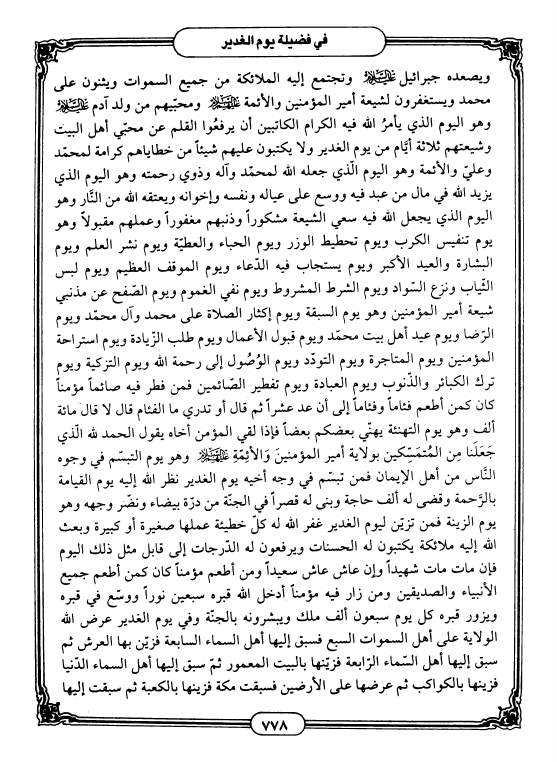 في فضيلة يوم الغدير
ويصعده جبرائيل عليه السلام وتجتمع إليه الملائكة من جميع السموات ويثنون على
محمد ويستغفرون لشيعة أمير المؤمنين والأئمة عليهم السلام ومحبّيهم من ولد آدم عليه السلام
وهو اليوم الذي يأمرُ الله فيه الكرام الكاتبين أن يرفعُوا القلم عن محبّي أهل البيت
وشيعتهم ثلاثة أيَّام من يوم الغدير ولا يكتبون عليهم شيئاً من خطاياهم كرامة لمحمّد
وعليّ والأئمة وهو اليوم الّذي جعله الله لمحمّد وآله وذوي رحمته وهو اليوم الذي
يزيد الله في مال من عبد فيه ووسع على عياله ونفسه وإخوانه ويعتقه الله من النَّار وهو
اليوم الذي يجعل الله فيه سعي الشيعة مشكوراً وذنبهم مغفوراً وعملهم مقبولاً وهو
يوم تنفيس الكرب ويوم تحطيط الوزر ويوم الحباء والعطيّة ويوم نشر العلم ويوم
البشارة والعيد الأكبر ويوم يستجاب فيه الدّعاء ويوم الموقف العظيم ويوم لبس
الثّياب ونزع السّواد ويوم الشرط المشروط ويوم نفي الغموم ويوم الصّفح عن مذنبي
شيعة أمير المؤمنين وهو يوم السبقة ويوم إكثار الصلاة على محمد وآل محمد ويوم
الرّضا ويوم عيد أهل بيت محمّد ويوم قبول الأعمال ويوم طلب الزّيادة ويوم استراحة
المؤمنين ويوم المتاجرة ويوم التودّد ويوم الوُصُول إلى رحمة الله ويوم التزكية ويوم
ترك الكبائر والذّنوب ويوم العبادة ويوم تفطير الصّائمين فمن فطر فيه صائماً مؤمناً
كان كمن أطعم فئاماً وفئاماً إلى أن عد عشراً ثم قال أو تدري ما الفئام قال لا قال مائة
ألف وهو يوم التهنئة يهنّي بعضكم بعضاً فإذا لقي المؤمن أخاه يقول الحمد لله الّذي
جَعَلَنا مِن المُتمَسّكين بولاية أمير المؤمنين وَالأئِمّةِ عليهم السلام وهو يوم التبسّم في وجوه
النَّاس من أهل الإيمان فمن تبسّم في وجه أخيه يوم الغدير نظر الله إليه يوم القيامة
بالرّحمة وقضى له ألف حاجة وبنى له قصراً في الجنّة من درّة بيضاء ونضّر وجهه وهو
يوم الزينة فمن تزيّن ليوم الغدير غفر الله له كلّ خطيئة عملها صغيرة أو كبيرة وبعث
الله إليه ملائكة يكتبون له الحسنات ويرفعون له الدّرجات إلى قابل مثل ذلك اليوم
فإن مات مات شهيداً وإن عاش عاش سعيداً ومن أطعم مؤمناً كان كمن أطعم جميع
الأنبياء والصديقين ومن زار فيه مؤمناً أدخل الله قبره سبعين نوراً ووسّع في قبره
ويزور قبره كل يوم سبعون ألف ملك ويبشرونه بالجنّة وفي يوم الغدير عرض الله
الولاية على أهل السموات السبع فسبق إليها أهل السماء السابعة فزيّن بها العرش ثم
سبق إليها أهل السّماء الرّابعة فزيّنها بالبيت المعمور ثمّ سبق إليها أهل السماء الدّنيا
فزينها بالكواكب ثم عرضها على الأرضين فسبقت مكة فزينها بالكعبة ثم سبقت إليها
٧٧٨